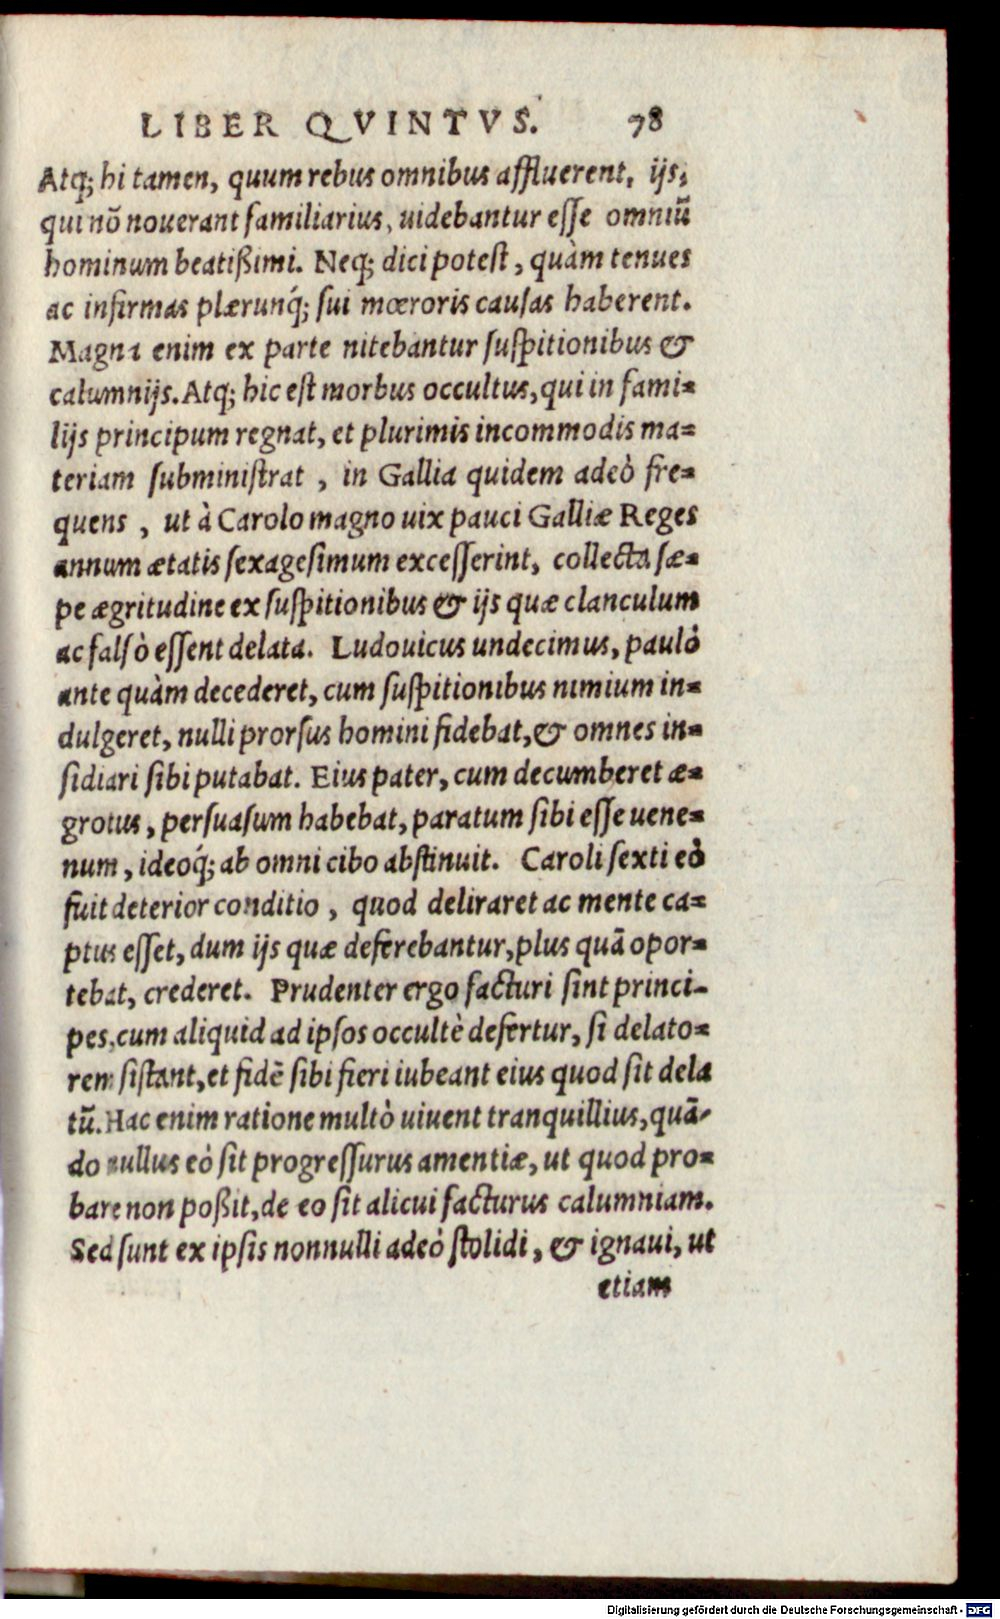 LIBER QVINTVS. 78
Atq; hi tamen, quum rebus omnibus affluerent, ijs,
qui nõ nouerant familiarius, uidebantur esse omniũ
hominum beatißimi. Neq; dici potest, quàm tenues
ac infirmas plærunq́; sui mœroris causas haberent.
Magna enim ex parte nitebantur suspitionibus &
calumnijs. Atq; hic est morbus occultus, qui in fami=
lijs principum regnat, et plurimis incommodis ma=
teriam subministrat, in Gallia quidem adeò fre=
quens, ut à Carolo magno uix pauci Galliæ Reges
annum ætatis sexagesimum excesserint, collecta sæ=
pe ægritudine ex suspitionibus & ijs quæ clanculum
ac falsò essent delata. Ludouicus undecimus, paulò
ante quàm decederet, cum suspitionibus nimium in=
dulgeret, nulli prorsus homini fidebat, & omnes in=
sidiari sibi putabat. Eius pater, cum decumberet æ=
grotus, persuasum habebat, paratum sibi esse uene=
num, ideoq́; ab omni cibo abstinuit. Caroli sexti eò
fuit deterior conditio, quod deliraret ac mente ca=
ptus esset, dum ijs quæ deferebantur, plus quã opor=
tebat, crederet. Prudenter ergo facturi sint princi-
pes, cum aliquid ad ipsos occultè defertur, si delato=
rem sistant, et fidẽ sibi fieri iubeant eius quod sit dela
tũ. Hac enim ratione multò uiuent tranquillius, quã-
do nullus eò sit progressurus amentiæ, ut quod pro=
bare non poßit, de eo sit alicui facturus calumniam.
Sed sunt ex ipsis nonnulli adeò stolidi, & ignaui, ut
etiam
Digitalisierung gefördert durch die Deutsche Forschungsgemeinschaft - DFG